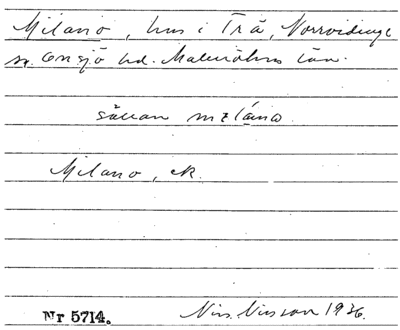 Milano, hus i Trä, Norrvidinge
sn. Onsjö hd. Malmöhus län.
sällan
Milano, ek.
Nr 5714. Nils Nilsson 1936.